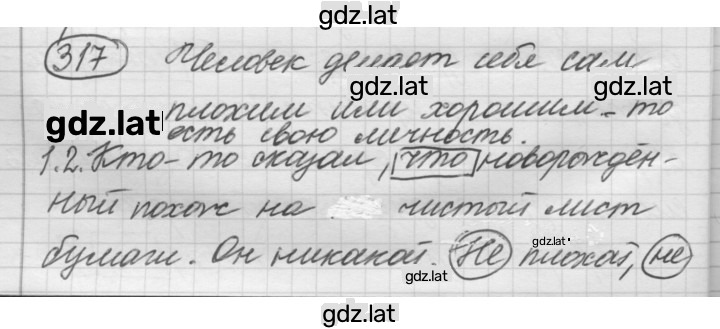 gdz.lat
317 Человек делает себя сам
gdz.lat gdz.lat
плохим или хорошим - то
gdz.lat
есть свою личность.
1.2. Кто-то сказал, что новорождён-
ный похож на чистый лист
gdz.lat
бумаги. Он никакой. Не плохой, не
gdz.lat
gdz.lat